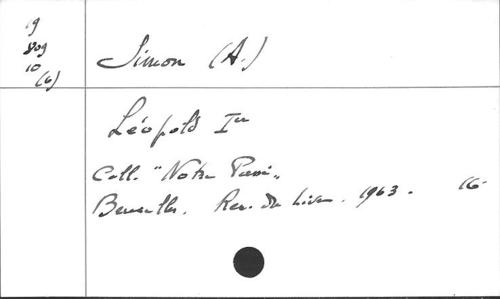 19
809
10
(6)
Simon (A.)
Léopold Ier
Coll. "Notre Passé"
Bruxelles. Ren. du Livre. 1963. 16-